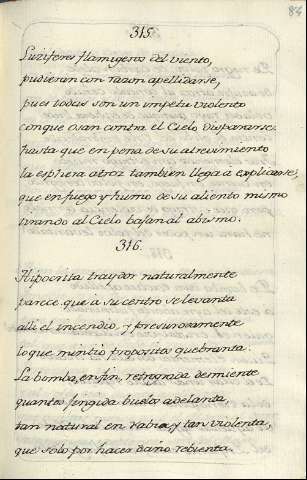 84
315.
Luziferes flamigeros del viento,
pudieran con razon apellidarse,
pues todos son un impetu violento
conque osan contra el Cielo dispararse.
hasta que en pena de su atrevimiento
la esphera atroz tambien llega a explicarse,
que en fuego y humo de su aliento mismo
tirando al Cielo bajan al abismo.
316.
Hipocrita traydor naturalmente
parece que a su centro se levanta
alli el incendio, y presurosamente
lo que mintio propositos quebranta.
La bomba, en fin, retrograda desmiente
quantos fingida buelos adelanta,
tan natural en rabia, y tan violenta,
que solo por hacer daño rebienta.